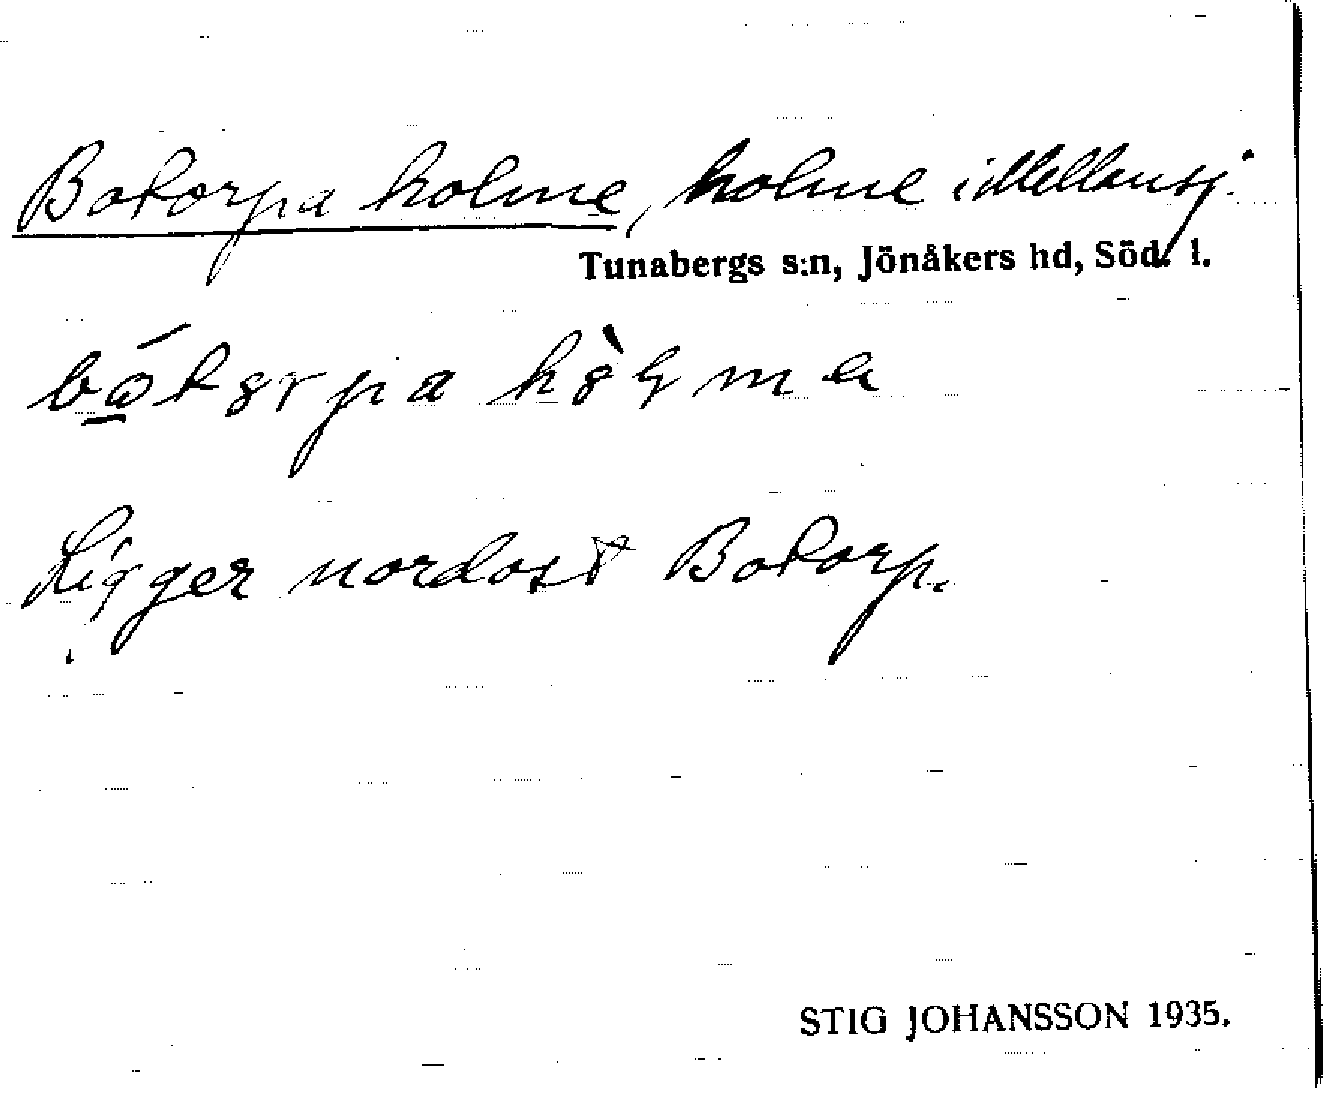 Botorpa holme, holme i Mellansj.
Tunabergs s:n, Jönåkers hd, Söd. l.
Ligger nordost Botorp.
STIG JOHANSSON 1935.